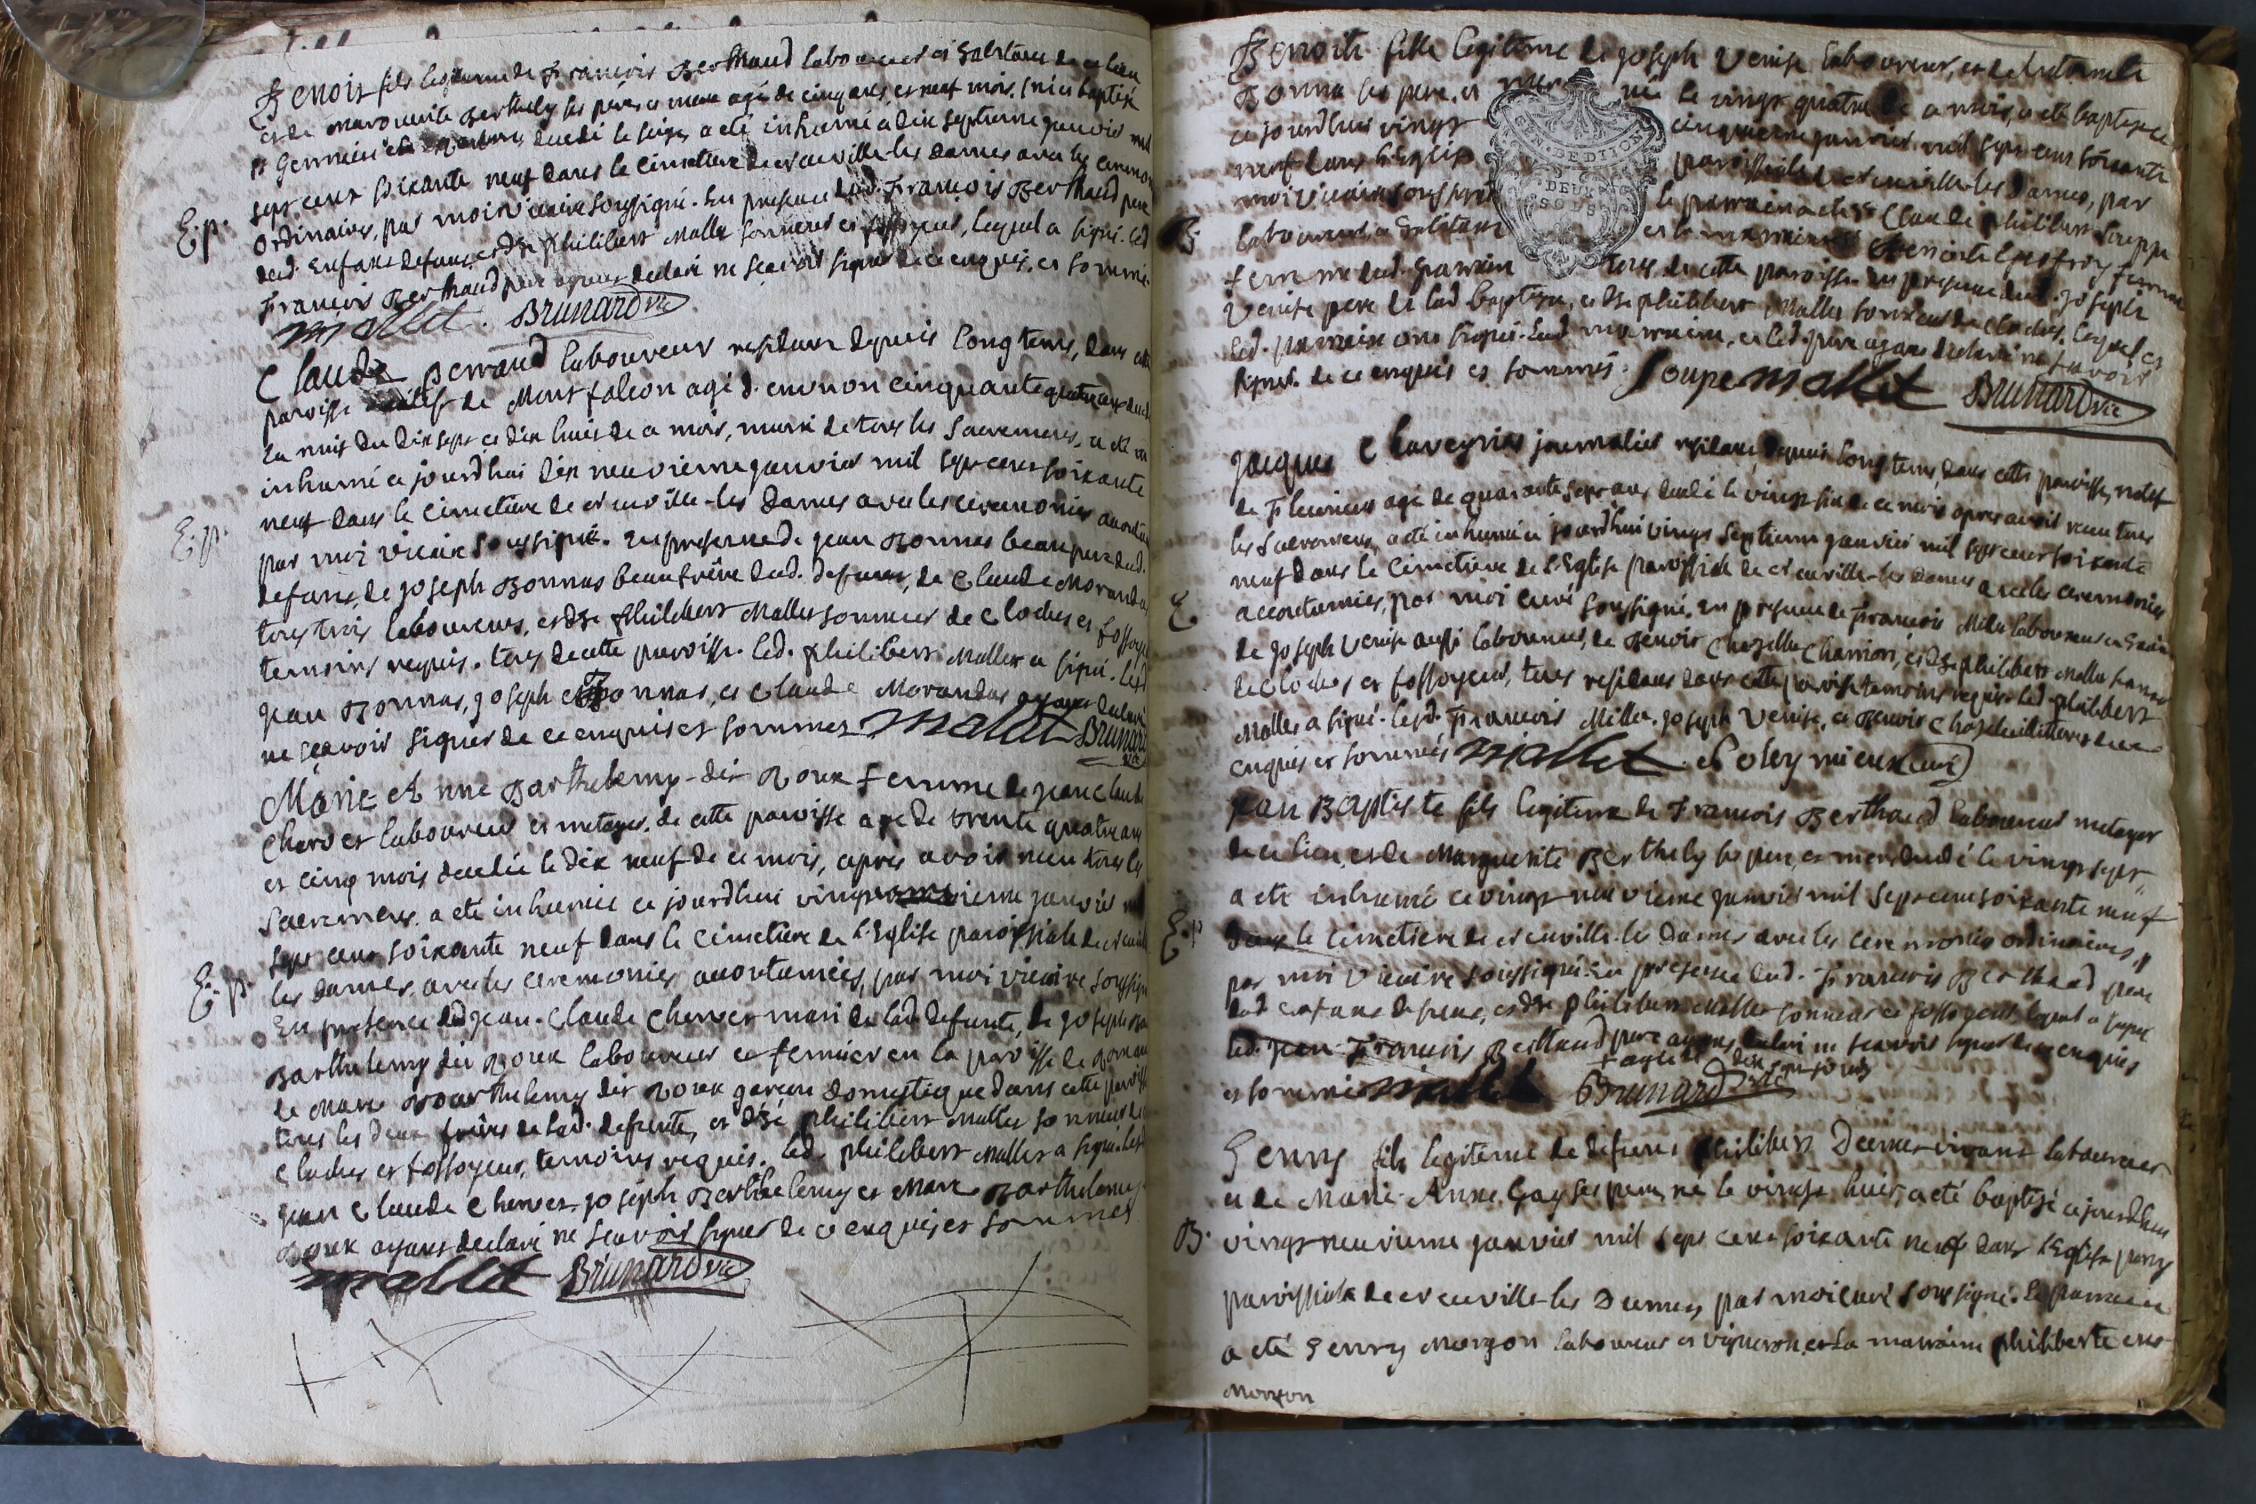 Benoit fils legitime de François Berthaud laboureur et habitant de ce lieu
et de Marguerite Berthely ses père, et mere agé de cinq ans, et neuf mois,
St Germain decedé le seize, a eté inhumé ce dix septieme janvier mil
sept cent soixante neuf dans le cimetiere de creuville-les Dames avec les ceremonies
E.p.
ordinaires, par moi Vicaire soussigné. En presence dud. François Berthaud pere
dud. enfant defunt, et de Philibert Mallet sonneur et fossoyeur, lequel a signé. led.
François Berthaud pere ayant declaré ne sçavoir signer de ce enquis, et sommé.
Mallet. Brunard vic
Claude Perraud laboureur residant depuis longtems, dans cette
paroisse natif de Montfalcon agé d'environ cinquante quatre ans decedé
la nuit du dix sept et dix huit de ce mois, muni de tous les sacremens, a eté
inhumé ce jourdhui dix neuvieme janvier mil sept cent soixante
neuf dans le cimetiere de creuville-les Dames avec les ceremonies
E.p.
par moi vicaire soussigné. En presence de jean Bonnas beaupere dud.
defunt, de joseph Bonnas beaufrère dud. defunt, de Claude Morandas
tous trois laboureurs, et de Philibert Mallet sonneur de cloches et fossoyeur
temoins requis. tous de cette paroisse. led. philibert Mallet a signé. lesd.
jean Bonnas, joseph Bonnas, et Claude Morandas ayant declaré
ne sçavoir signer de ce enquis et sommés Mallet Brunard
vic
Marie Anne Barthelemy dit Roux femme de jean Claude
Chervet laboureur et metayer, de cette paroisse agée de trente quatre ans
et cinq mois decedée le dix neuf de ce mois, après avoir reçu tous les
sacremens, a eté inhumée ce jourdhui vingt janvier mil
sept cent soixante neuf dans le cimetiere de l'Eglise paroissiale de creuville
E.p.
les Dames, avec les ceremonies accoutumées, par moi vicaire soussigné
En presence de jean-Claude Chervet mari de lad. defunte, de joseph
Barthelemy dit Roux laboureur et fermier en la paroisse de
de Marc Barthelemy dit Roux garçon domestique dans cette paroisse
tous les deux frères de lad. defunte, et de philibert Mallet sonneur de
cloches et fossoyeur, temoins requis. led. philibert Mallet a signé. lesd.
jean Claude Chervet, joseph Barthelemy et Marc Barthelemy
Roux ayant declaré ne sçavoir signer de ce enquis et sommés
Mallet Brunard vic
Benoite fille legitime de joseph Venise laboureur, et de
Bonna ses pere, et mere née le vingt quatre de ce mois, a eté baptisée
ce jourdhui vingt cinquieme janvier mil sept cent soixante
neuf dans l'Eglise paroissiale de creuville-les Dames, par
moi vicaire soussigné le parrain a eté Claude philibert Souppe
B.
laboureur, et habitant et la marraine Benoite femme
femme dud. parrain tous de cette paroisse. en presence dud. joseph
Venise pere de lad. baptisée, et de philibert Mallet sonneur de cloches. lesquels et
led. parrain ont signé. lad. marraine, et led. pere ayant declaré ne sçavoir
signer. de ce enquis et sommés. Soupe Mallet Brunard vic
GEN. DE DIJON
DEUX
SOLS
jacques Chaveyrias journalier residant depuis longtems, dans cette paroisse, natif
de Fleurieux agé de quarante sept ans decedé le vingt six de ce mois apres avoir reçu tous
les sacremens, a eté inhumé ce jourdhui vingt septieme janvier mil sept cent soixante
neuf dans le cimetiere de l'Eglise paroissiale de creuville-les Dames avec les ceremonies
E.
accoutumées, par moi curé soussigné. en presence de François Millet laboureur
de joseph Venise aussi laboureur, de Benoit Chazelle charron, et de philibert Mallet sonneur
de cloches et fossoyeur, tous residans dans cette paroisse temoins requis. led. philibert
Mallet a signé. lesd. François Millet. joseph Venise, et Benoit Chazelle illitterés de ce
enquis et sommés Mallet. Poleymieux curé
jean Baptiste fils legitime de François Berthaud laboureur metayer
de ce lieu, et de Marguerite Berthely ses pere, et mere, decedé le vingt sept,
a eté inhumé ce vingt neuvieme janvier mil sept cent soixante neuf
E.p.
dans le cimetiere de creuville-les Dames avec les ceremonies ordinaires,
par moi Vicaire soussigné. En presence dud. François Berthaud pere
dud. enfant defunt, et de philibert Mallet sonneur et fossoyeur, lequel a signé
led. jean François Berthaud pere ayant declaré ne sçavoir signer de ce enquis
+ agé de dix jours
et sommé Mallet Brunard vic
Henry fils legitime de defunt Philibert Dumas vivant laboureur
et de Marie-Anne Gay ses pere, né le vingt huit, a eté baptisé ce jourdhui
B.
vingt neuvieme janvier mil sept cent soixante neuf dans l'Eglise
paroissiale de creuville-les Dames, par moi curé soussigné. le parrain
a eté Henry Morgon laboureur et vigneron, et la marraine philiberte
Morgon